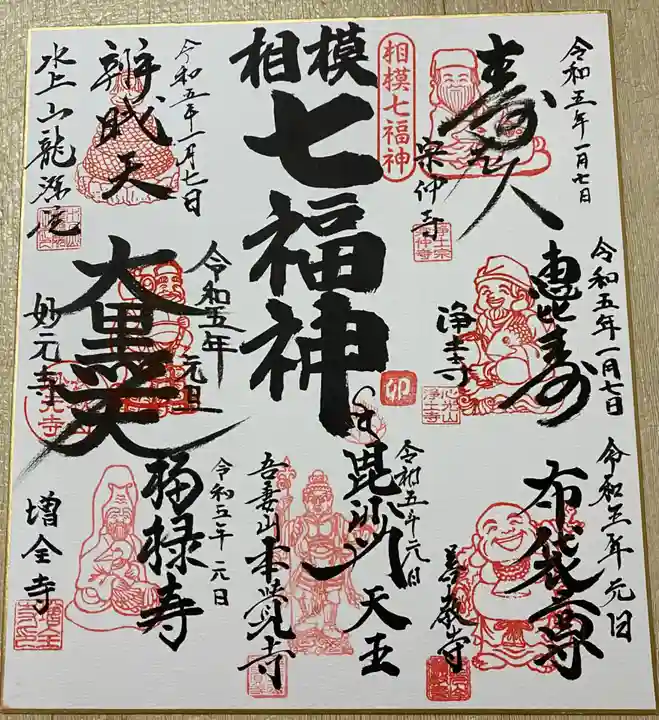 相模
七福神
相模七福神
卯
令和五年一月七日
寿老人
宗仲寺
浄土宗
宗仲寺
令和五年一月七日
恵比寿
浄土寺
心光山
浄土寺
令和五年元旦
布袋尊
善教寺
令和五年元日
毘沙門天王
吾妻山本覚寺
令和五年一月七日
辨財天
水上山龍源院
令和五年
元旦
大黒天
妙元寺
令和五年
元日
福禄寿
増全寺